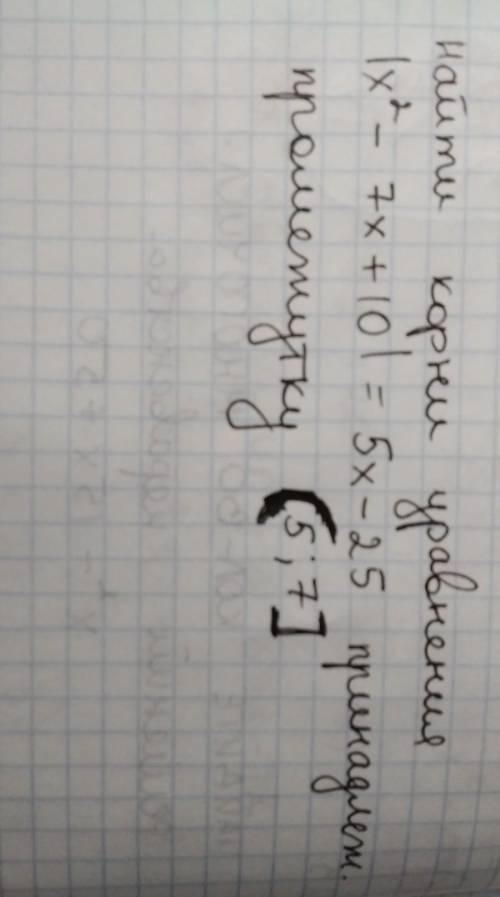 Найти корни уравнения
|x² - 7x + 10| = 5x - 25 принадлеж.
промежутку (5; 7]